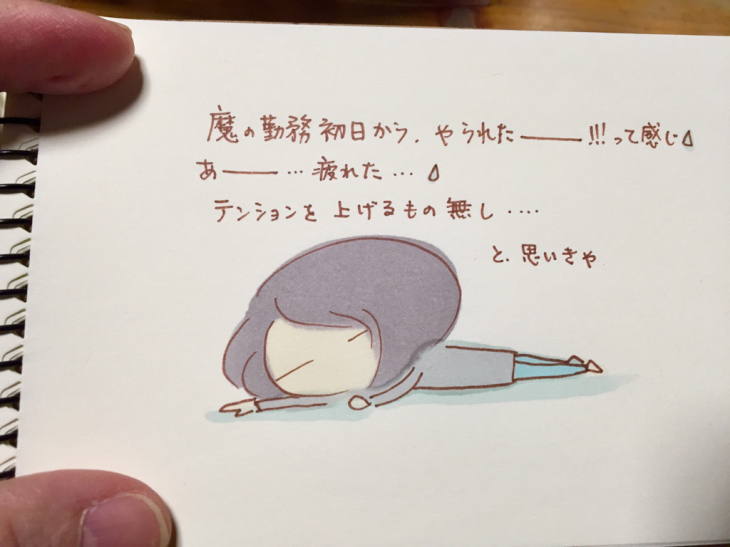 魔の勤務初日から、やられた――!!!って感じ
あ――…疲れた…
テンションを上げるもの無し‥‥
と、思いきや